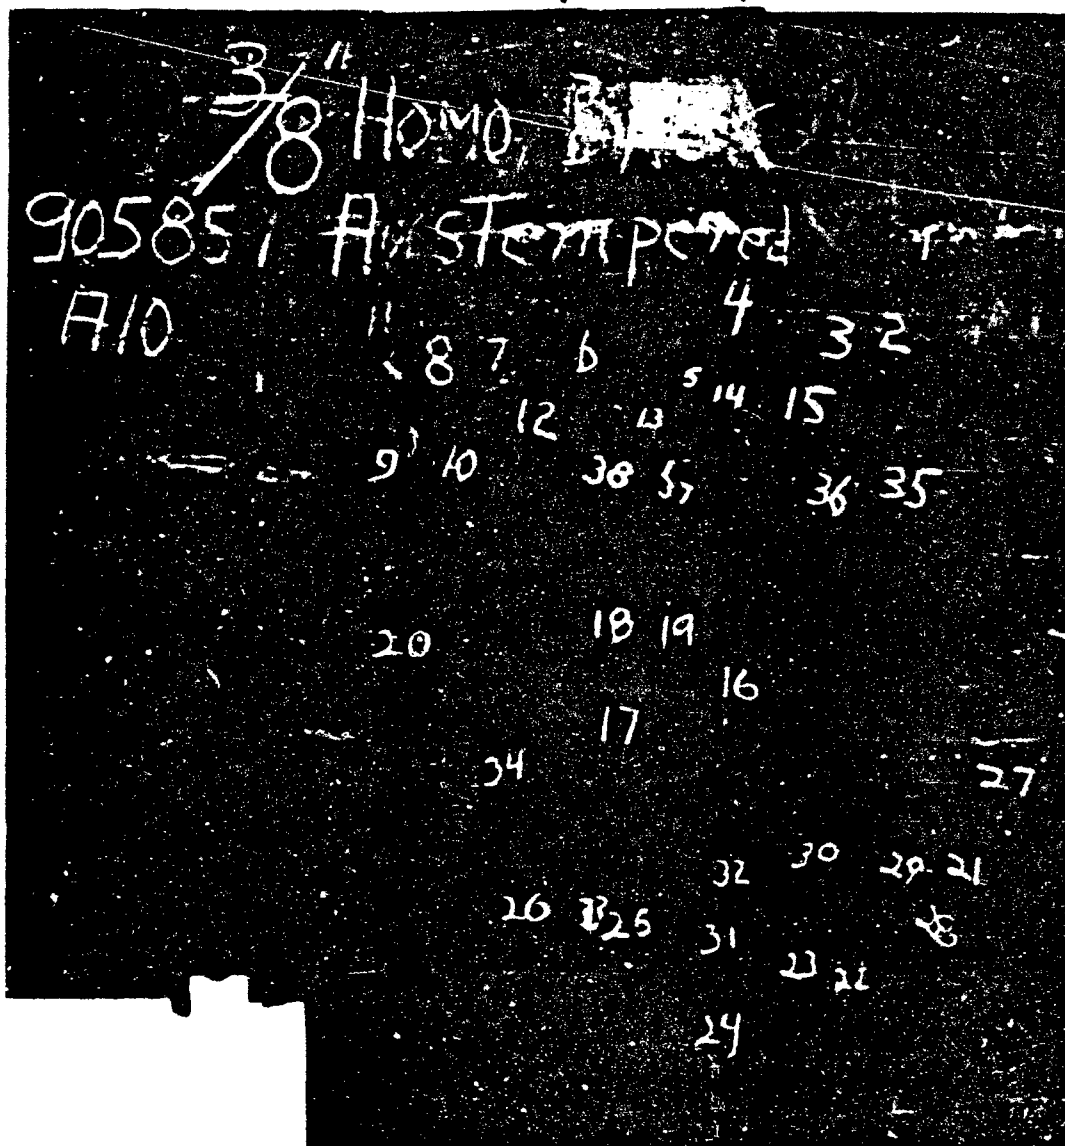 3/8" Homo,
905851 Austempered
A10 11 4
8 7 6 3 2
5 14 15
12 13
9 10 38 37 36 35
18 19
20
16
17
34 27
32 30 29 21
26 25 28
31
23 22
24